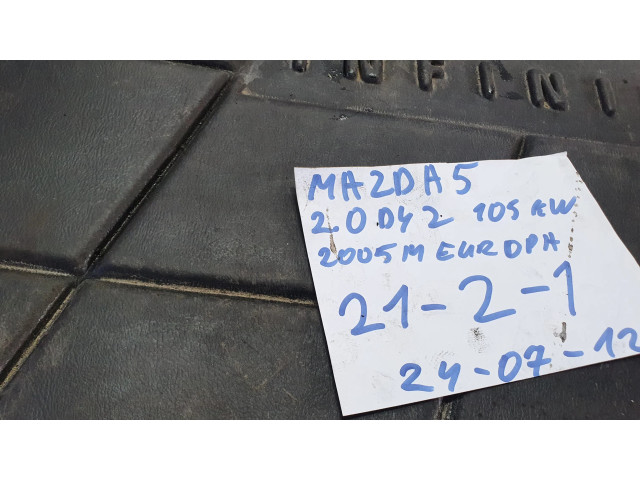 INFINI
MAZDA 5
2.0 D42 105 KW
2005M EUROPA
21-2-1
24-07-12